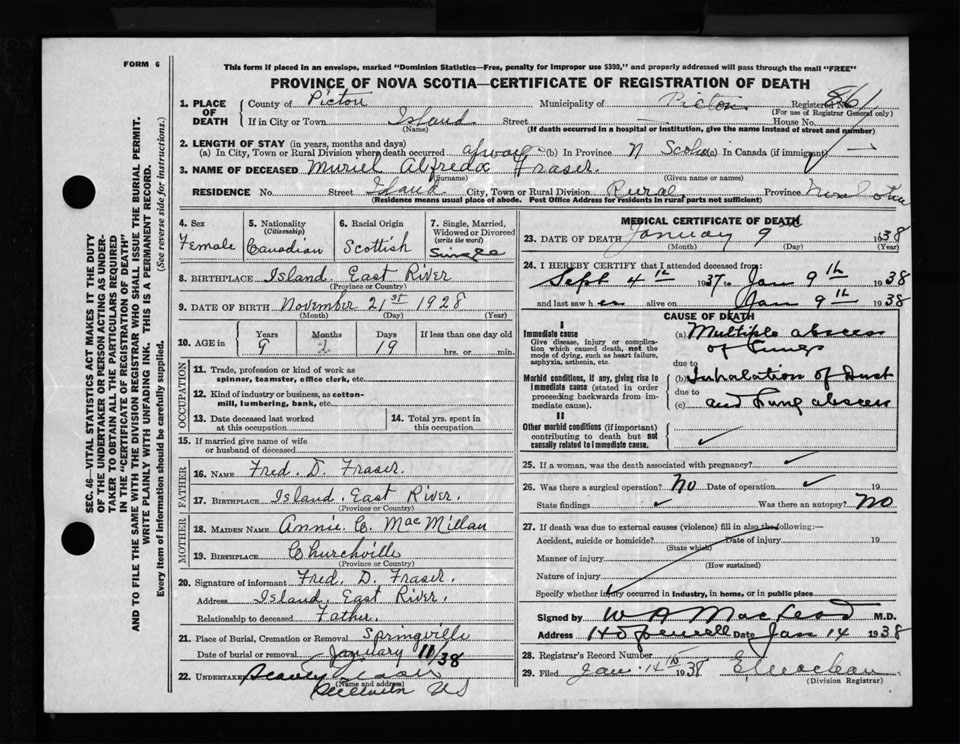 FORM 6
This form if placed in an envelope, marked "Dominion Statistics—Free, penalty for improper use $300," and properly addressed will pass through the mail "FREE"
PROVINCE OF NOVA SCOTIA—CERTIFICATE OF REGISTRATION OF DEATH
SEC. 46—VITAL STATISTICS ACT MAKES IT THE DUTY
OF THE UNDERTAKER OR PERSON ACTING AS UNDER-
TAKER TO OBTAIN ALL THE PARTICULARS REQUIRED
IN THE "CERTIFICATE OF REGISTRATION OF DEATH"
AND TO FILE THE SAME WITH THE DIVISION REGISTRAR WHO SHALL ISSUE THE BURIAL PERMIT.
WRITE PLAINLY WITH UNFADING INK. THIS IS A PERMANENT RECORD.
Every item of information should be carefully supplied. (See reverse side for instructions.)
1. PLACE OF DEATH County of Pictou Municipality of Pictou Registered No. 861
(For use of Registrar General only)
If in City or Town Island Street House No.
(Name) (If death occurred in a hospital or institution, give the name instead of street and number)
2. LENGTH OF STAY (in years, months and days)
(a) In City, Town or Rural Division where death occurred always (b) In Province N Scotia (c) In Canada (if immigrant)
3. NAME OF DECEASED Muriel Alfreda Fraser.
(Surname) (Given name or names)
RESIDENCE No. Street Island City, Town or Rural Division Rural Province Nova Scotia
(Residence means usual place of abode. Post Office Address for residents in rural parts not sufficient)
4. Sex Female
5. Nationality (Citizenship) Canadian
6. Racial Origin Scottish
7. Single, Married, Widowed or Divorced (write the word) Single
8. BIRTHPLACE Island East River
(Province or Country)
9. DATE OF BIRTH November 21st 1928
(Month) (Day) (Year)
10. AGE in Years 9 Months 1 Days 19 If less than one day old hrs. or min.
OCCUPATION
11. Trade, profession or kind of work as
spinner, teamster, office clerk, etc.
12. Kind of industry or business, as cotton-
mill, lumbering, bank, etc.
13. Date deceased last worked at this occupation
14. Total yrs. spent in this occupation
15. If married give name of wife
or husband of deceased
FATHER
16. NAME Fred. D. Fraser.
17. BIRTHPLACE Island. East River.
(Province or Country)
MOTHER
18. MAIDEN NAME Annie C. MacMillan
19. BIRTHPLACE Churchville
(Province or Country)
20. Signature of informant Fred. D. Fraser.
Address Island. East River.
Relationship to deceased Father.
21. Place of Burial, Cremation or Removal Springville
Date of burial or removal January 11/38
22. UNDERTAKER
(Name and address)
MEDICAL CERTIFICATE OF DEATH
23. DATE OF DEATH January 9th 1938
(Month) (Day) (Year)
24. I HEREBY CERTIFY that I attended deceased from:
Sept 4th 1937 to Jan 9th 1938
and last saw her alive on Jan 9th 1938
CAUSE OF DEATH
I
Immediate cause (a) Multiple abscess
Give disease, injury or complica-
tion which caused death, not the
mode of dying, such as heart failure,
asphyxia, asthenia, etc.
of Lungs
due to
Morbid conditions, if any, giving rise to
immediate cause (stated in order
proceeding backwards from im-
mediate cause).
(b) Inhalation of Dust
due to
(c) and Lung abscess
II
Other morbid conditions (if important)
contributing to death but not
causally related to immediate cause.
25. If a woman, was the death associated with pregnancy?
26. Was there a surgical operation? No Date of operation 19
State findings Was there an autopsy? No
27. If death was due to external causes (violence) fill in also the following:—
Accident, suicide or homicide? Date of injury 19
(State which)
Manner of injury
(How sustained)
Nature of injury
Specify whether injury occurred in industry, in home, or in public place
Signed by W A MacLeod M.D.
Address Hopewell Date Jan 14 1938
28. Registrar's Record Number
29. Filed Jan 14th 1938
(Division Registrar)